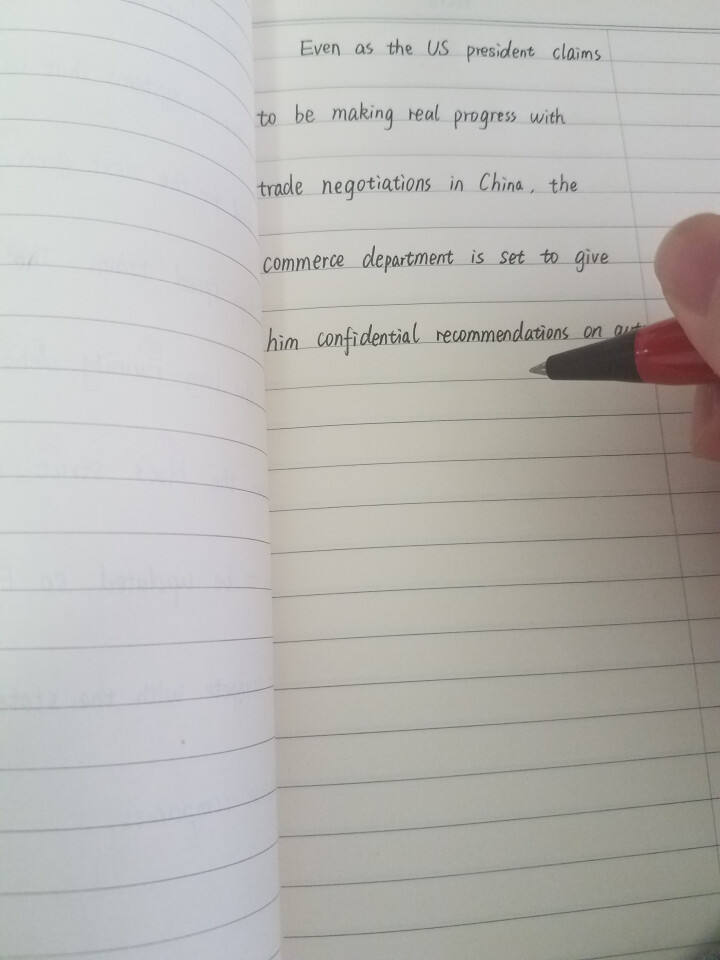 Even as the US president claims
to be making real progress with
trade negotiations in China, the
commerce department is set to give
him confidential recommendations on